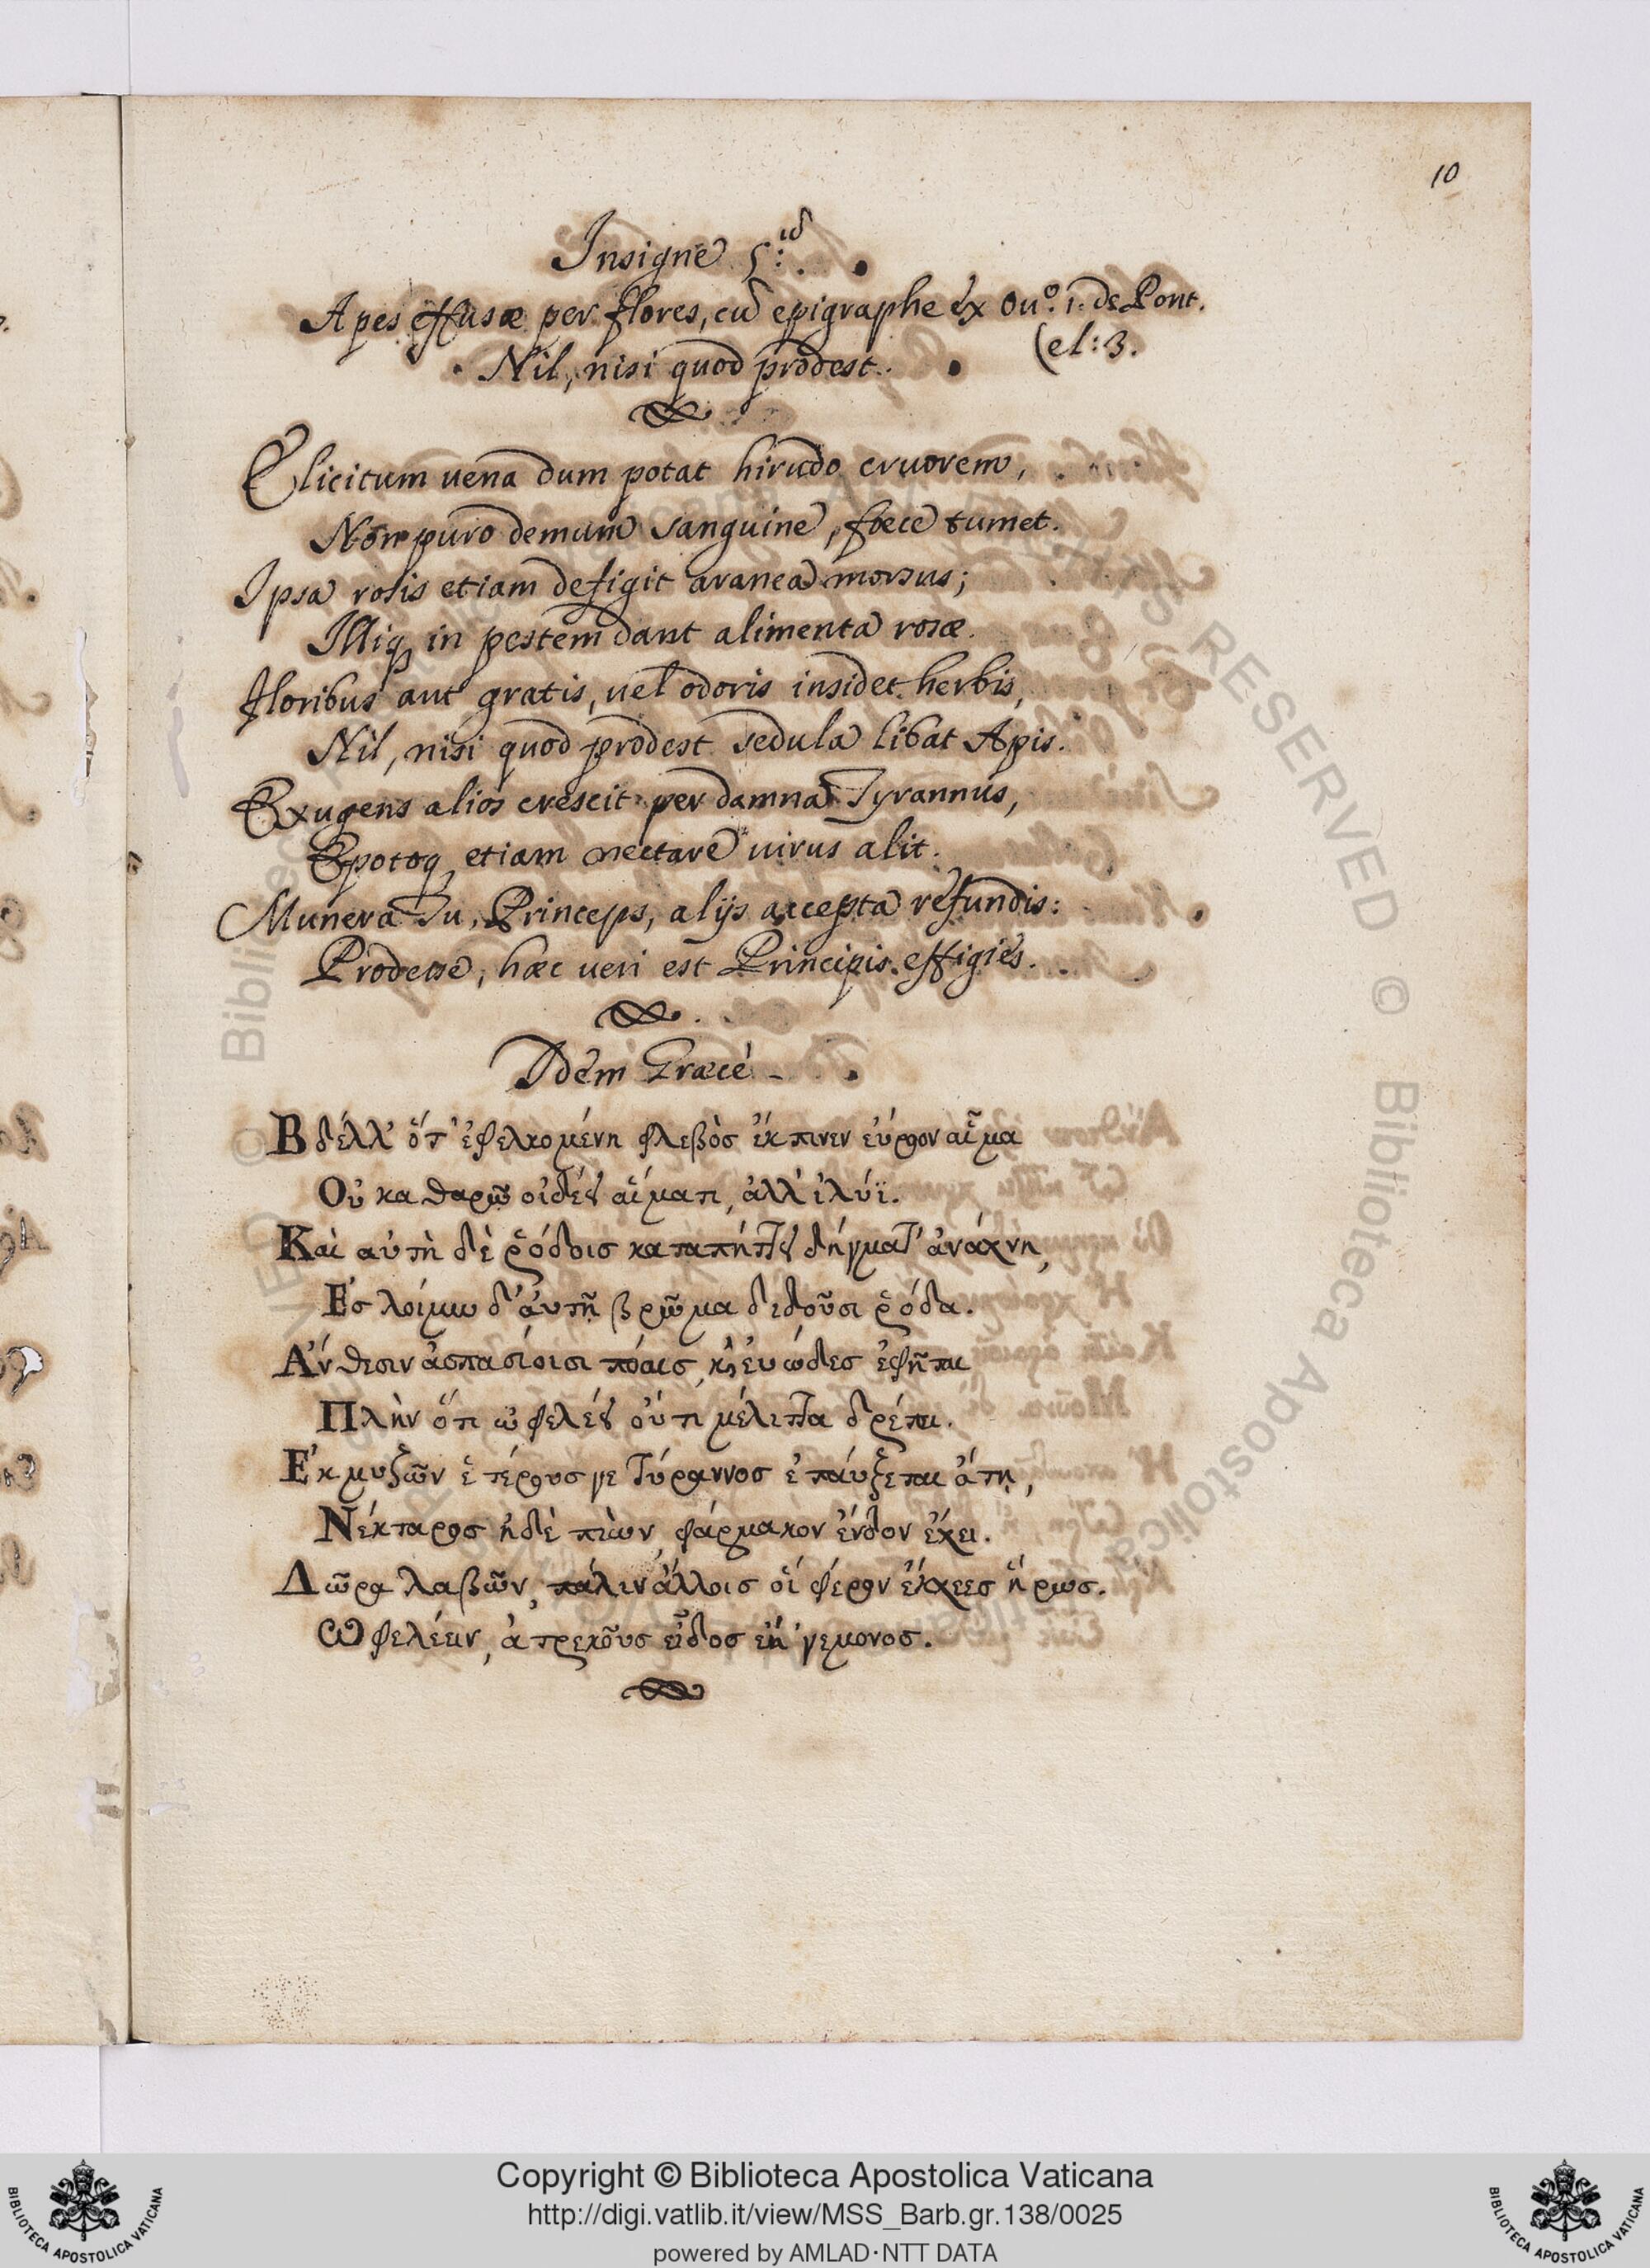 10
Insigne 5:ũ
Apes effusæ per flores, cũ epigraphe ex Ou:º 1: de Pont.
(el: 3.
Nil, nisi quod prodest.
Elicitum uena dum potat hirudo cruorem,
Non puro demum sanguine, fœce tumet.
Ipsa rosis etiam defigit aranea morsus;
Illiq; in pestem dant alimenta rosæ.
Floribus aut gratis, uel odoris insidet herbis,
Nil, nisi quod prodest sedula libat Apis.
Exugens alios crescit per damna Tyrannus,
Epotoq; etiam nectare uirus alit.
Munera Tu, Princeps, alijs accepta refundis:
Prodesse, hæc ueri est Principis effigies.
Idem Græcè
Βδέλλ' ὅτ' ἐφελκομένη φλεβὸς ἔκπινεν εύρρον αἷμα
Οὐ καθαρῷ οἰδεῖ αἵματι, ἀλλ' ἰλύϊ.
Καὶ αὐτὴ δὲ ῥόδοις καταπήττει δήγματ' ἀνάχνη,
Ες λοίμω δ' ἀυτῇ βρῶμα διδοῦσι ῥόδα.
Ἄνθεσιν ἀσπασίοισι πόαις, κὴ ἐυώδες ἐφῆπται
Πλὴν ὅτι ὠφελέει οὔτι μέλιττα δρέπται.
Ἐκμυζῶν ἑτέρους γε Τύραννος ἐπάυξεται ἄτῃ,
Νέκταρος ἠδὲ πιὼν, φάρμακον ἔνδον ἔχει.
Δῶρα λαβῶν, πάλιν ἄλλοις οἵ φέρον ἔκχεες ἥρως.
Ωφελέειν, ἀτρεκοῦς εἶδος ἐὴ 'γεμονος.
Copyright © Biblioteca Apostolica Vaticana
http://digi.vatlib.it/view/MSS_Barb.gr.138/0025
powered by AMLAD·NTT DATA
BIBLIOTECA APOSTOLICA VATICANA
BIBLIOTECA APOSTOLICA VATICANA